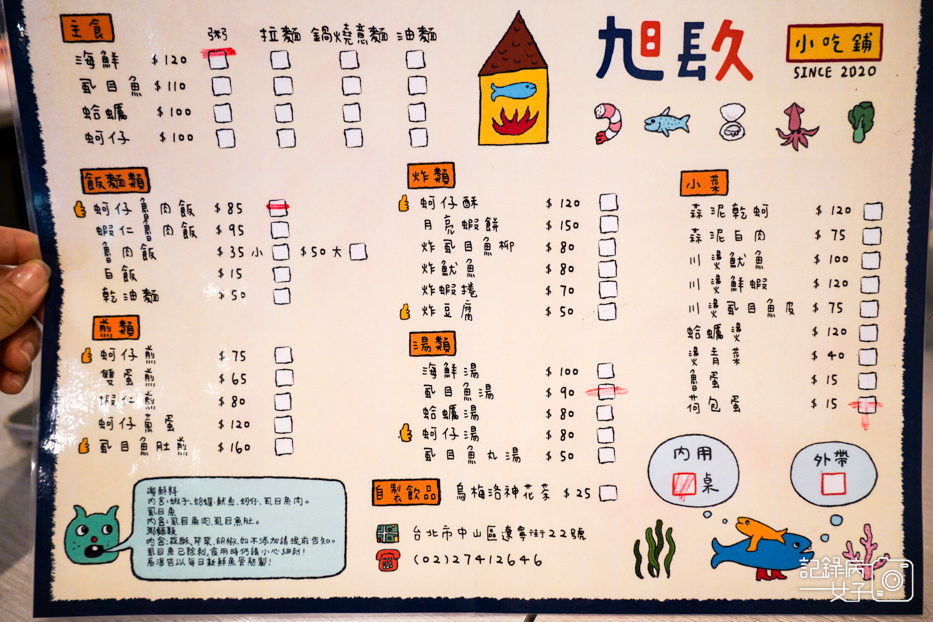 旭 镹
小吃鋪
SINCE 2020
主食
粥 拉麵 鍋燒意麵 油麵
海鮮 $120
虱目魚 $110
蛤蠣 $100
蚵仔 $100
飯麵類
蚵仔魯肉飯 $85
蝦仁魯肉飯 $95
魯肉飯 $35 小 $50 大
白飯 $15
乾油麵 $50
煎類
蚵仔煎 $75
雙蛋煎 $65
蝦仁煎 $80
蚵仔蔥蛋 $120
虱目魚肚煎 $160
炸類
蚵仔酥 $120
月亮蝦餅 $150
炸虱目魚柳 $80
炸魷魚 $80
炸蝦捲 $70
炸豆腐 $50
湯類
海鮮湯 $100
虱目魚湯 $90
蛤蠣湯 $80
蚵仔湯 $80
虱目魚丸湯 $50
自製飲品 烏梅洛神花茶 $25
小菜
蒜泥乾蚵 $120
蒜泥白肉 $75
川燙魷魚 $100
川燙鮮蝦 $120
川燙虱目魚皮 $75
蛤蠣燙 $120
燙青菜 $40
魯蛋 $15
荷包蛋 $15
內用
桌
外帶
海鮮料
內容:蝦子、蛤蠣、魷魚、蚵仔、虱目魚肉。
虱目魚
內容:虱目魚肉、虱目魚肚。
粥麵類
內容:蒜酥、芹菜、胡椒,如不添加請提前告知。
虱目魚已除刺,食用時仍請小心細刺!
高湯皆以每日新鮮魚骨熬製!
台北市中山區遼寧街22號
(02)27412646
記錄病
女子